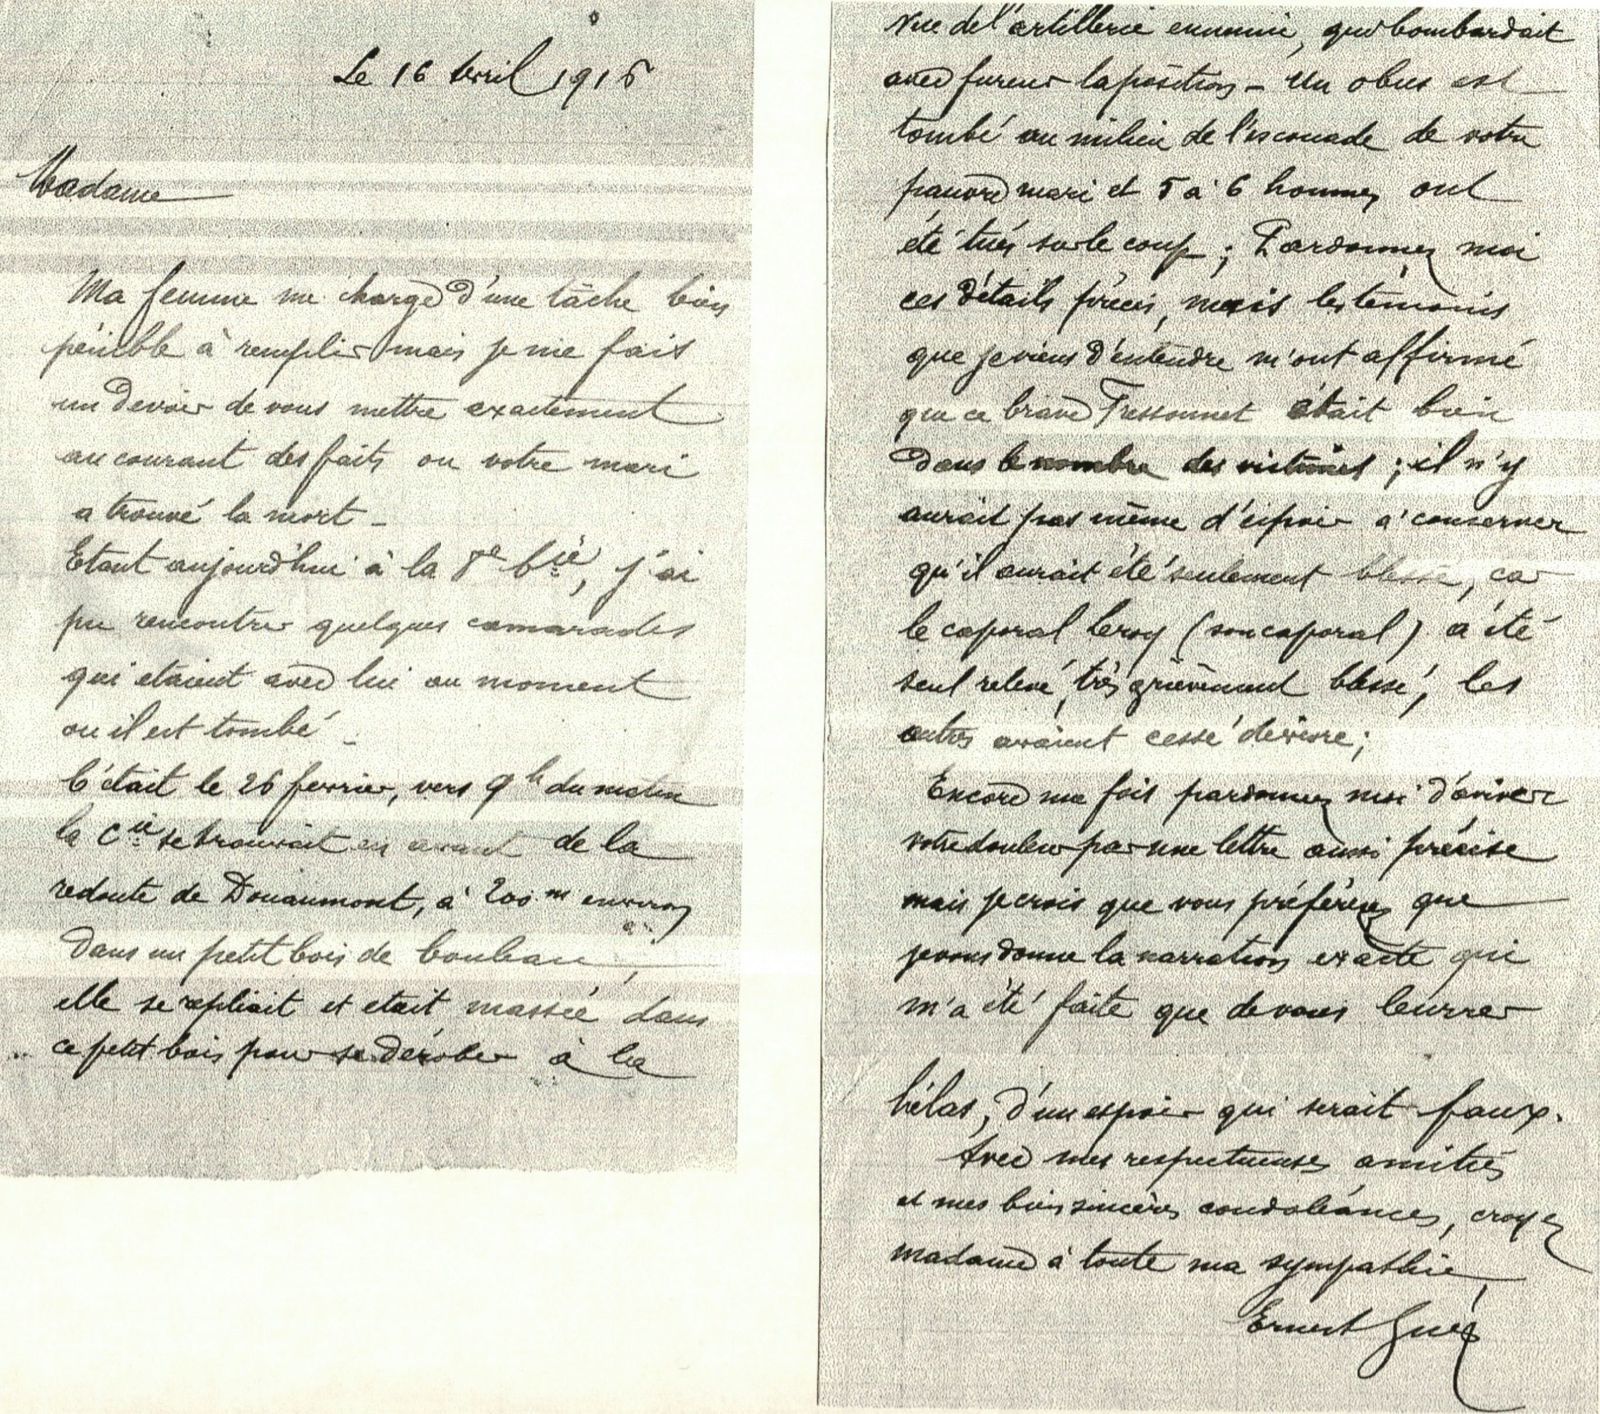 Le 16 Avril 1916
Madame
Ma femme me charge d'une tâche bien
pénible à remplir mais je me fais
un devoir de vous mettre exactement
au courant des faits ou votre mari
a trouvé la mort _
Etant aujourd'hui à la 8e Cie, j'ai
pu rencontrer quelques camarades
qui etaient avec lui au moment
ou il est tombé _
C'était le 26 fevrier, vers 9h du matin
la Cie se trouvait en avant de la
redoute de Douaumont, à 200m environ
dans un petit bois de bouleau ;
elle se repliait et etait massée dans
ce petit bois pour se dérober à la
vue de l'artillerie ennemie, qui bombardait
avec fureur la position _ Un obus est
tombé au milieu de l'escouade de votre
pauvre mari et 5 à 6 hommes ont
été tués sur le coup ; Pardonnez moi
ces détails précis, mais les témoins
que je viens d'entendre m'ont affirmé
que ce brave Tressonnet était bien
dans le nombre des victimes ; il n'y
aurait pas même d'espoir à conserver
qu'il aurait été seulement blessé, car
le caporal Leroy (son caporal) a été
seul relevé, très grièvement blessé, les
autres avaient cessé de vivre ;
Encore une fois pardonnez moi d'aviver
votre douleur par une lettre aussi précise
mais je crois que vous préférez que
je vous donne la narration exacte qui
m'a été faite que de vous leurrer
hélas, d'un espoir qui serait faux.
Avec mes respectueuses amitiés
et mes bien sincères condoléances, croyez
madame à toute ma sympathie
Ernest